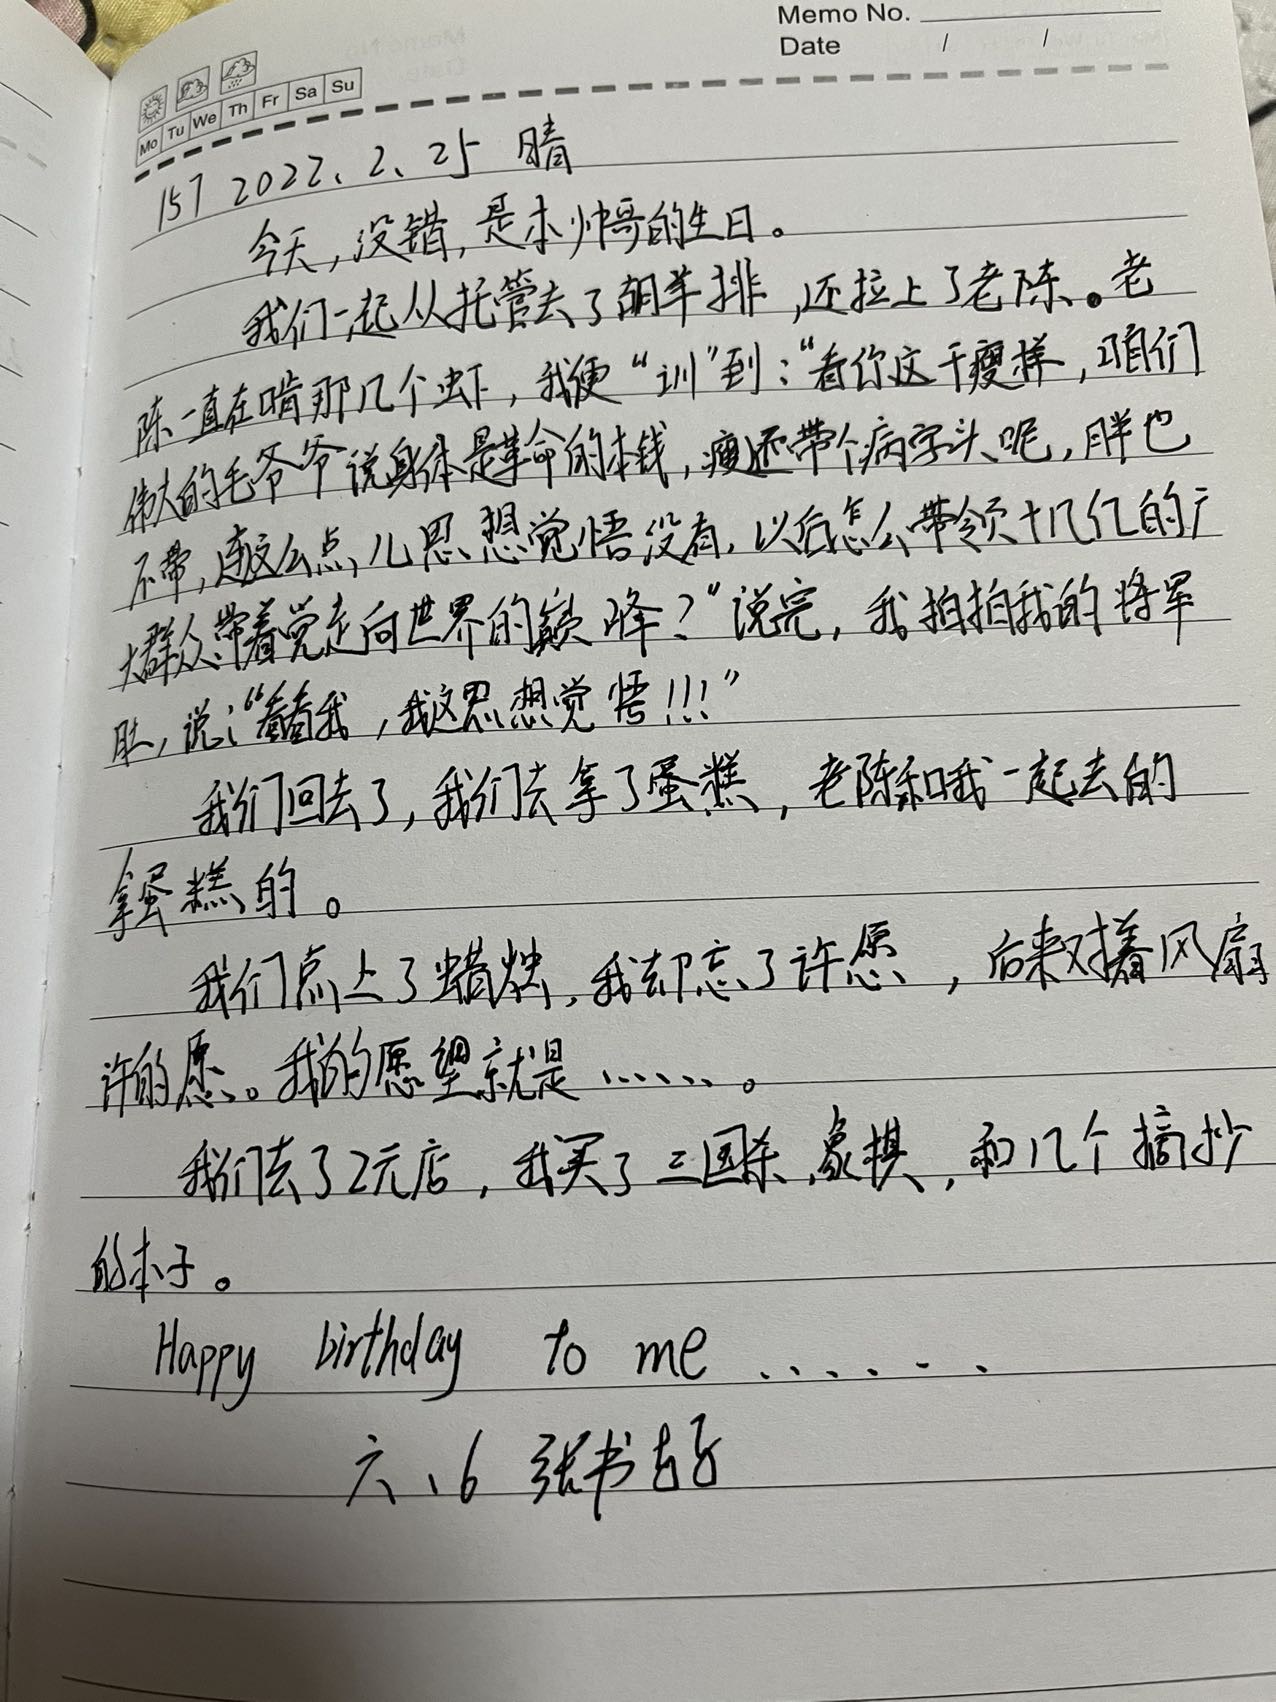 Memo No.
Date / /
Mo Tu We Th Fr Sa Su
157 2022、2、25 晴
今天,没错,是本帅哥的生日。
我们一起从托管去了胡羊排,还拉上了老陈。老
陈一直在啃那几个虾,我便“训”到:“看你这干瘦样,咱们
伟大的毛爷爷说身体是革命的本钱,瘦还带个病字头呢,胖也
不带,连这么点儿思想觉悟没有,以后怎么带领十几亿的广
大群众带着党走向世界的巅峰?”说完,我拍拍我的将军
肚,说:“看看我,我这思想觉悟!!!”
我们回去了,我们去拿了蛋糕,老陈和我一起去的
拿蛋糕的。
我们点上了蜡烛,我却忘了许愿,后来对着风扇
许的愿。我的愿望就是……。
我们去了2元店,我买了三国杀,象棋,和几个摘抄
的本子。
Happy birthday to me ......
六、6 张书